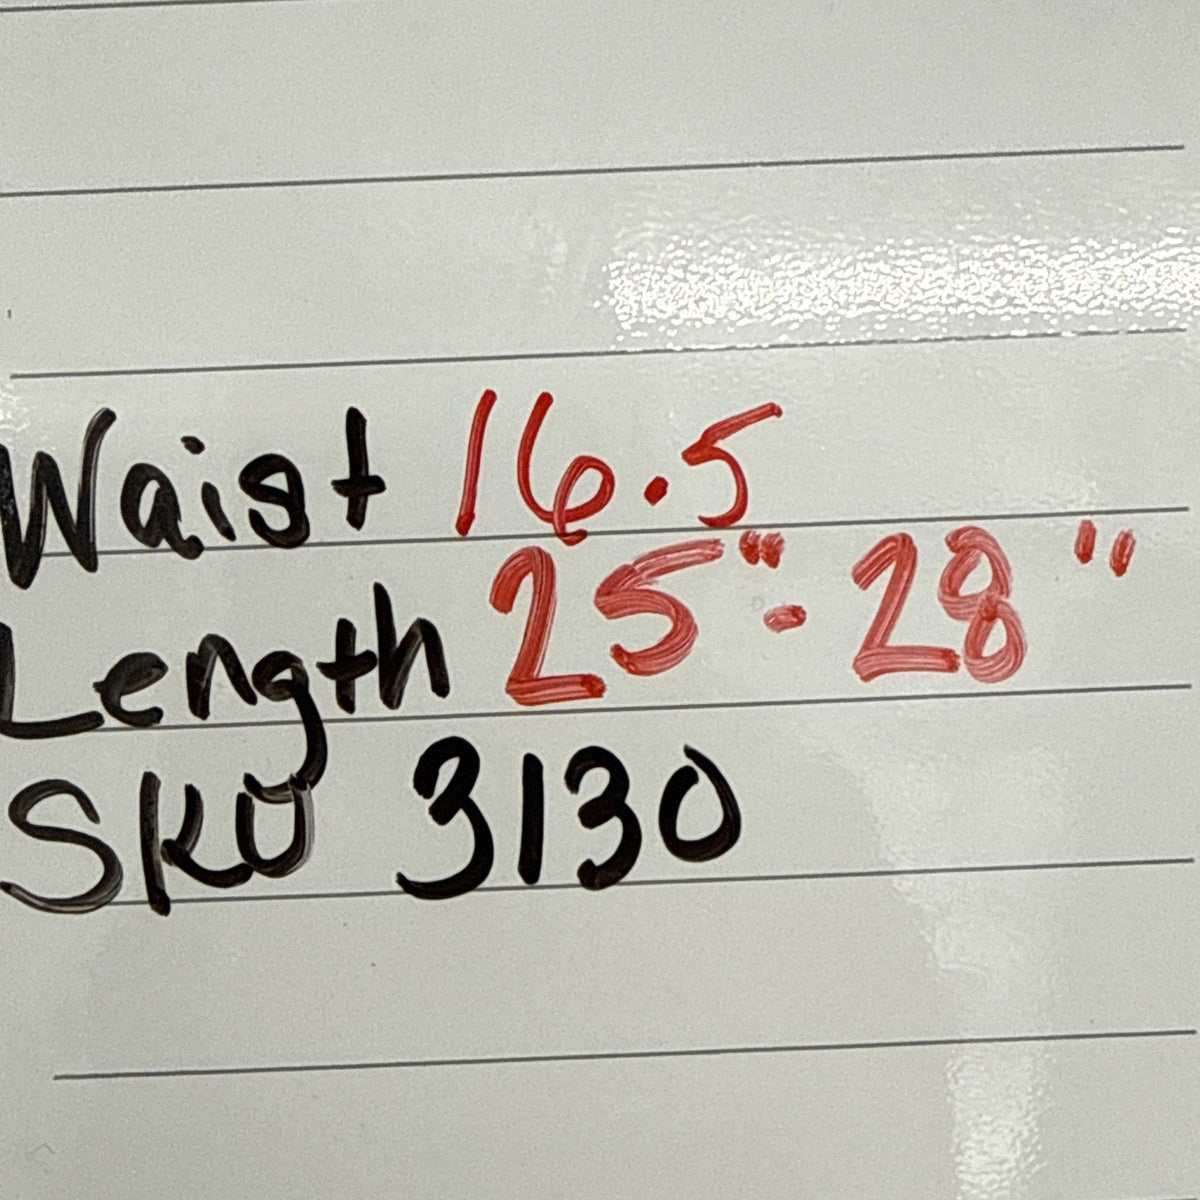 Waist 16.5
Length 25"-28"
SKU 3130